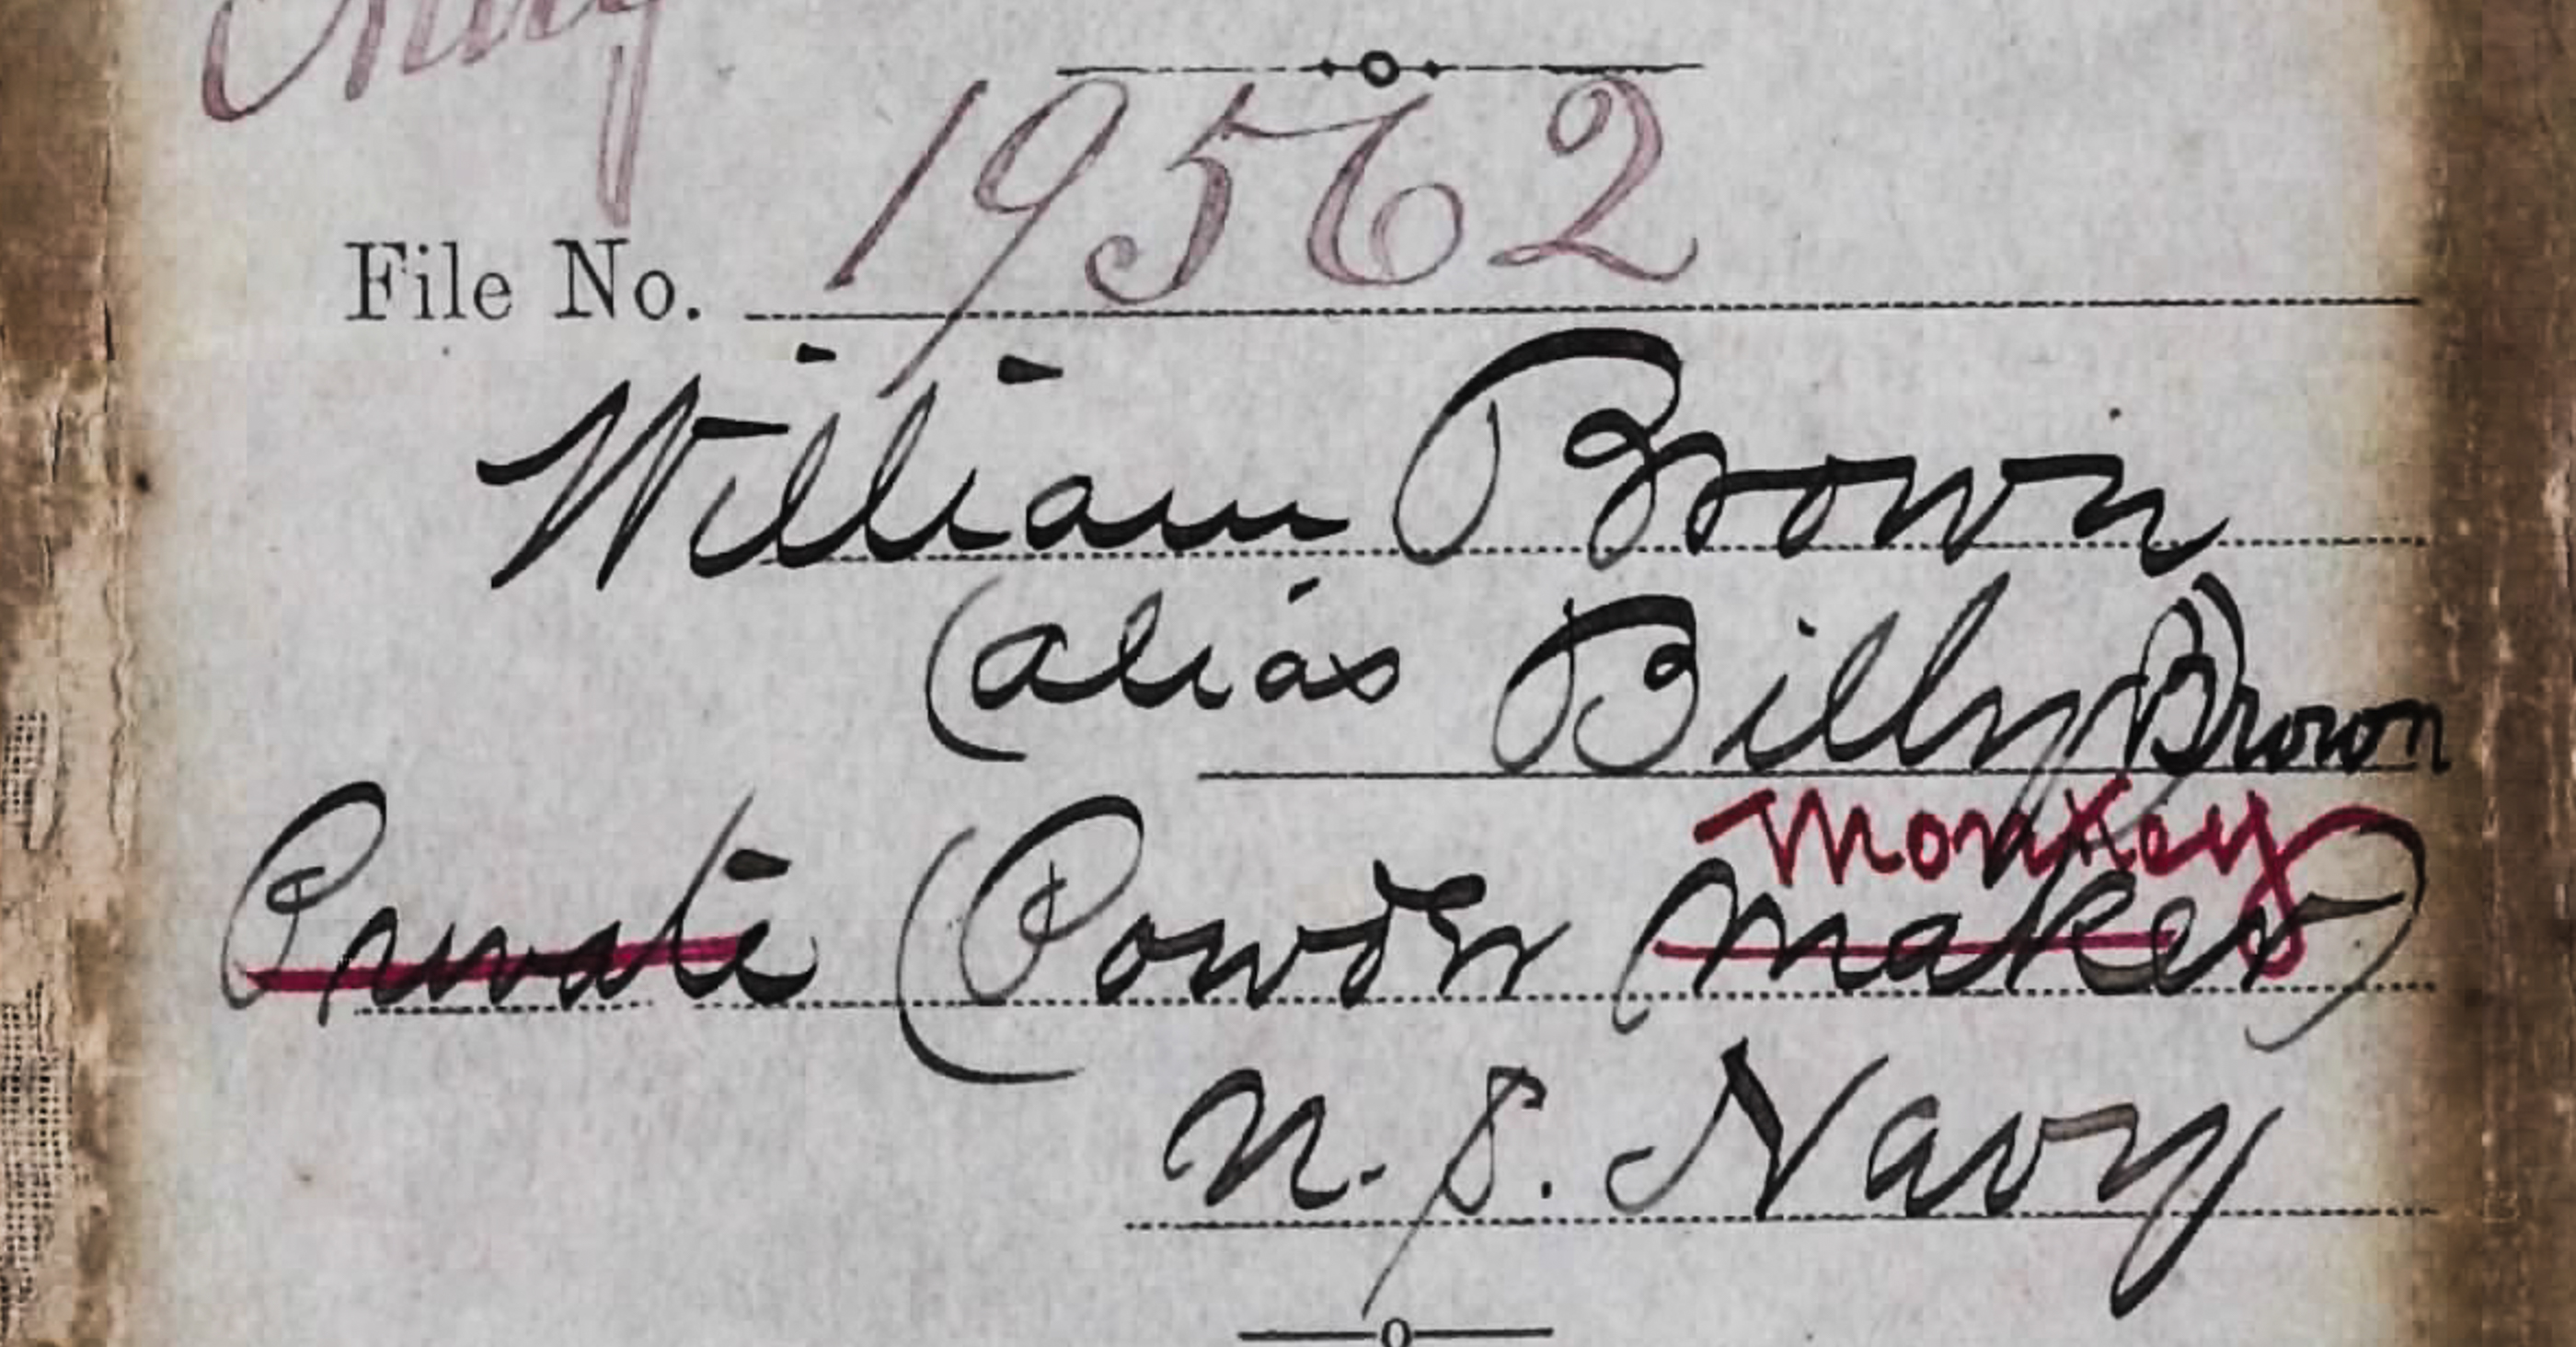 File No. 19562
William Brown
(alias Billy Brown)
Monkey
Private (Powder Maker)
U.S. Navy